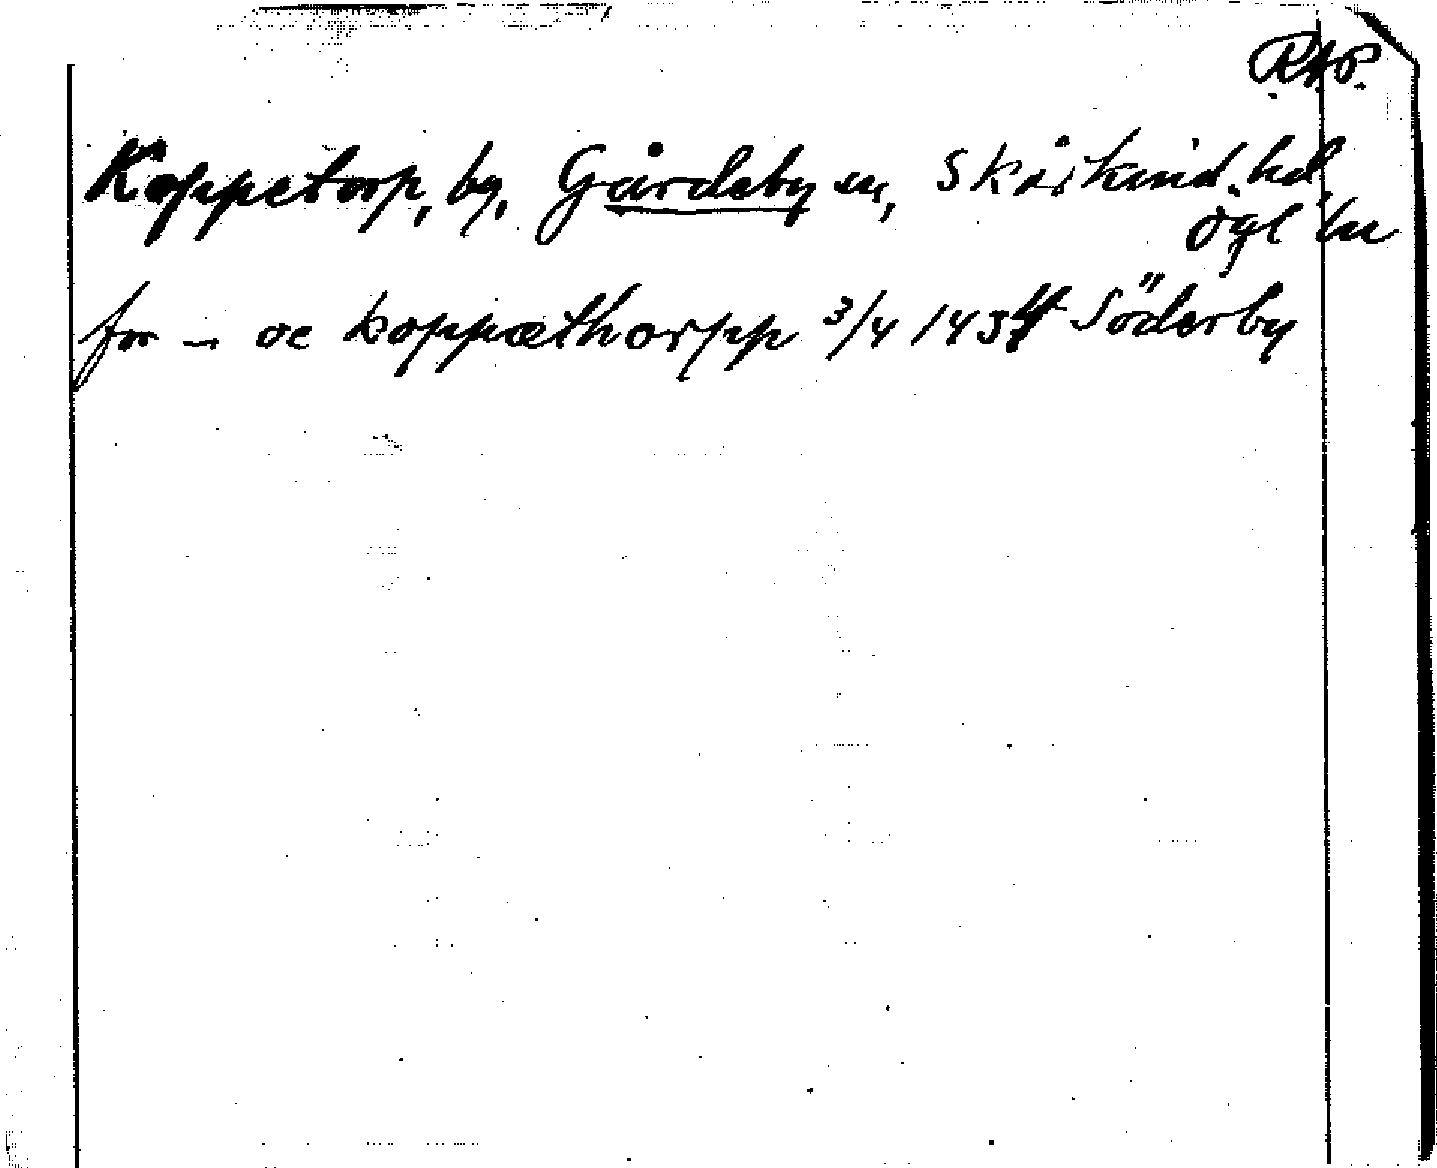 R.A.P.
Koppetorp, by, Gårdeby sn, Skärkind. hd,
Ögl län
for — oc koppæthorpp 3/4 1434 Söderby